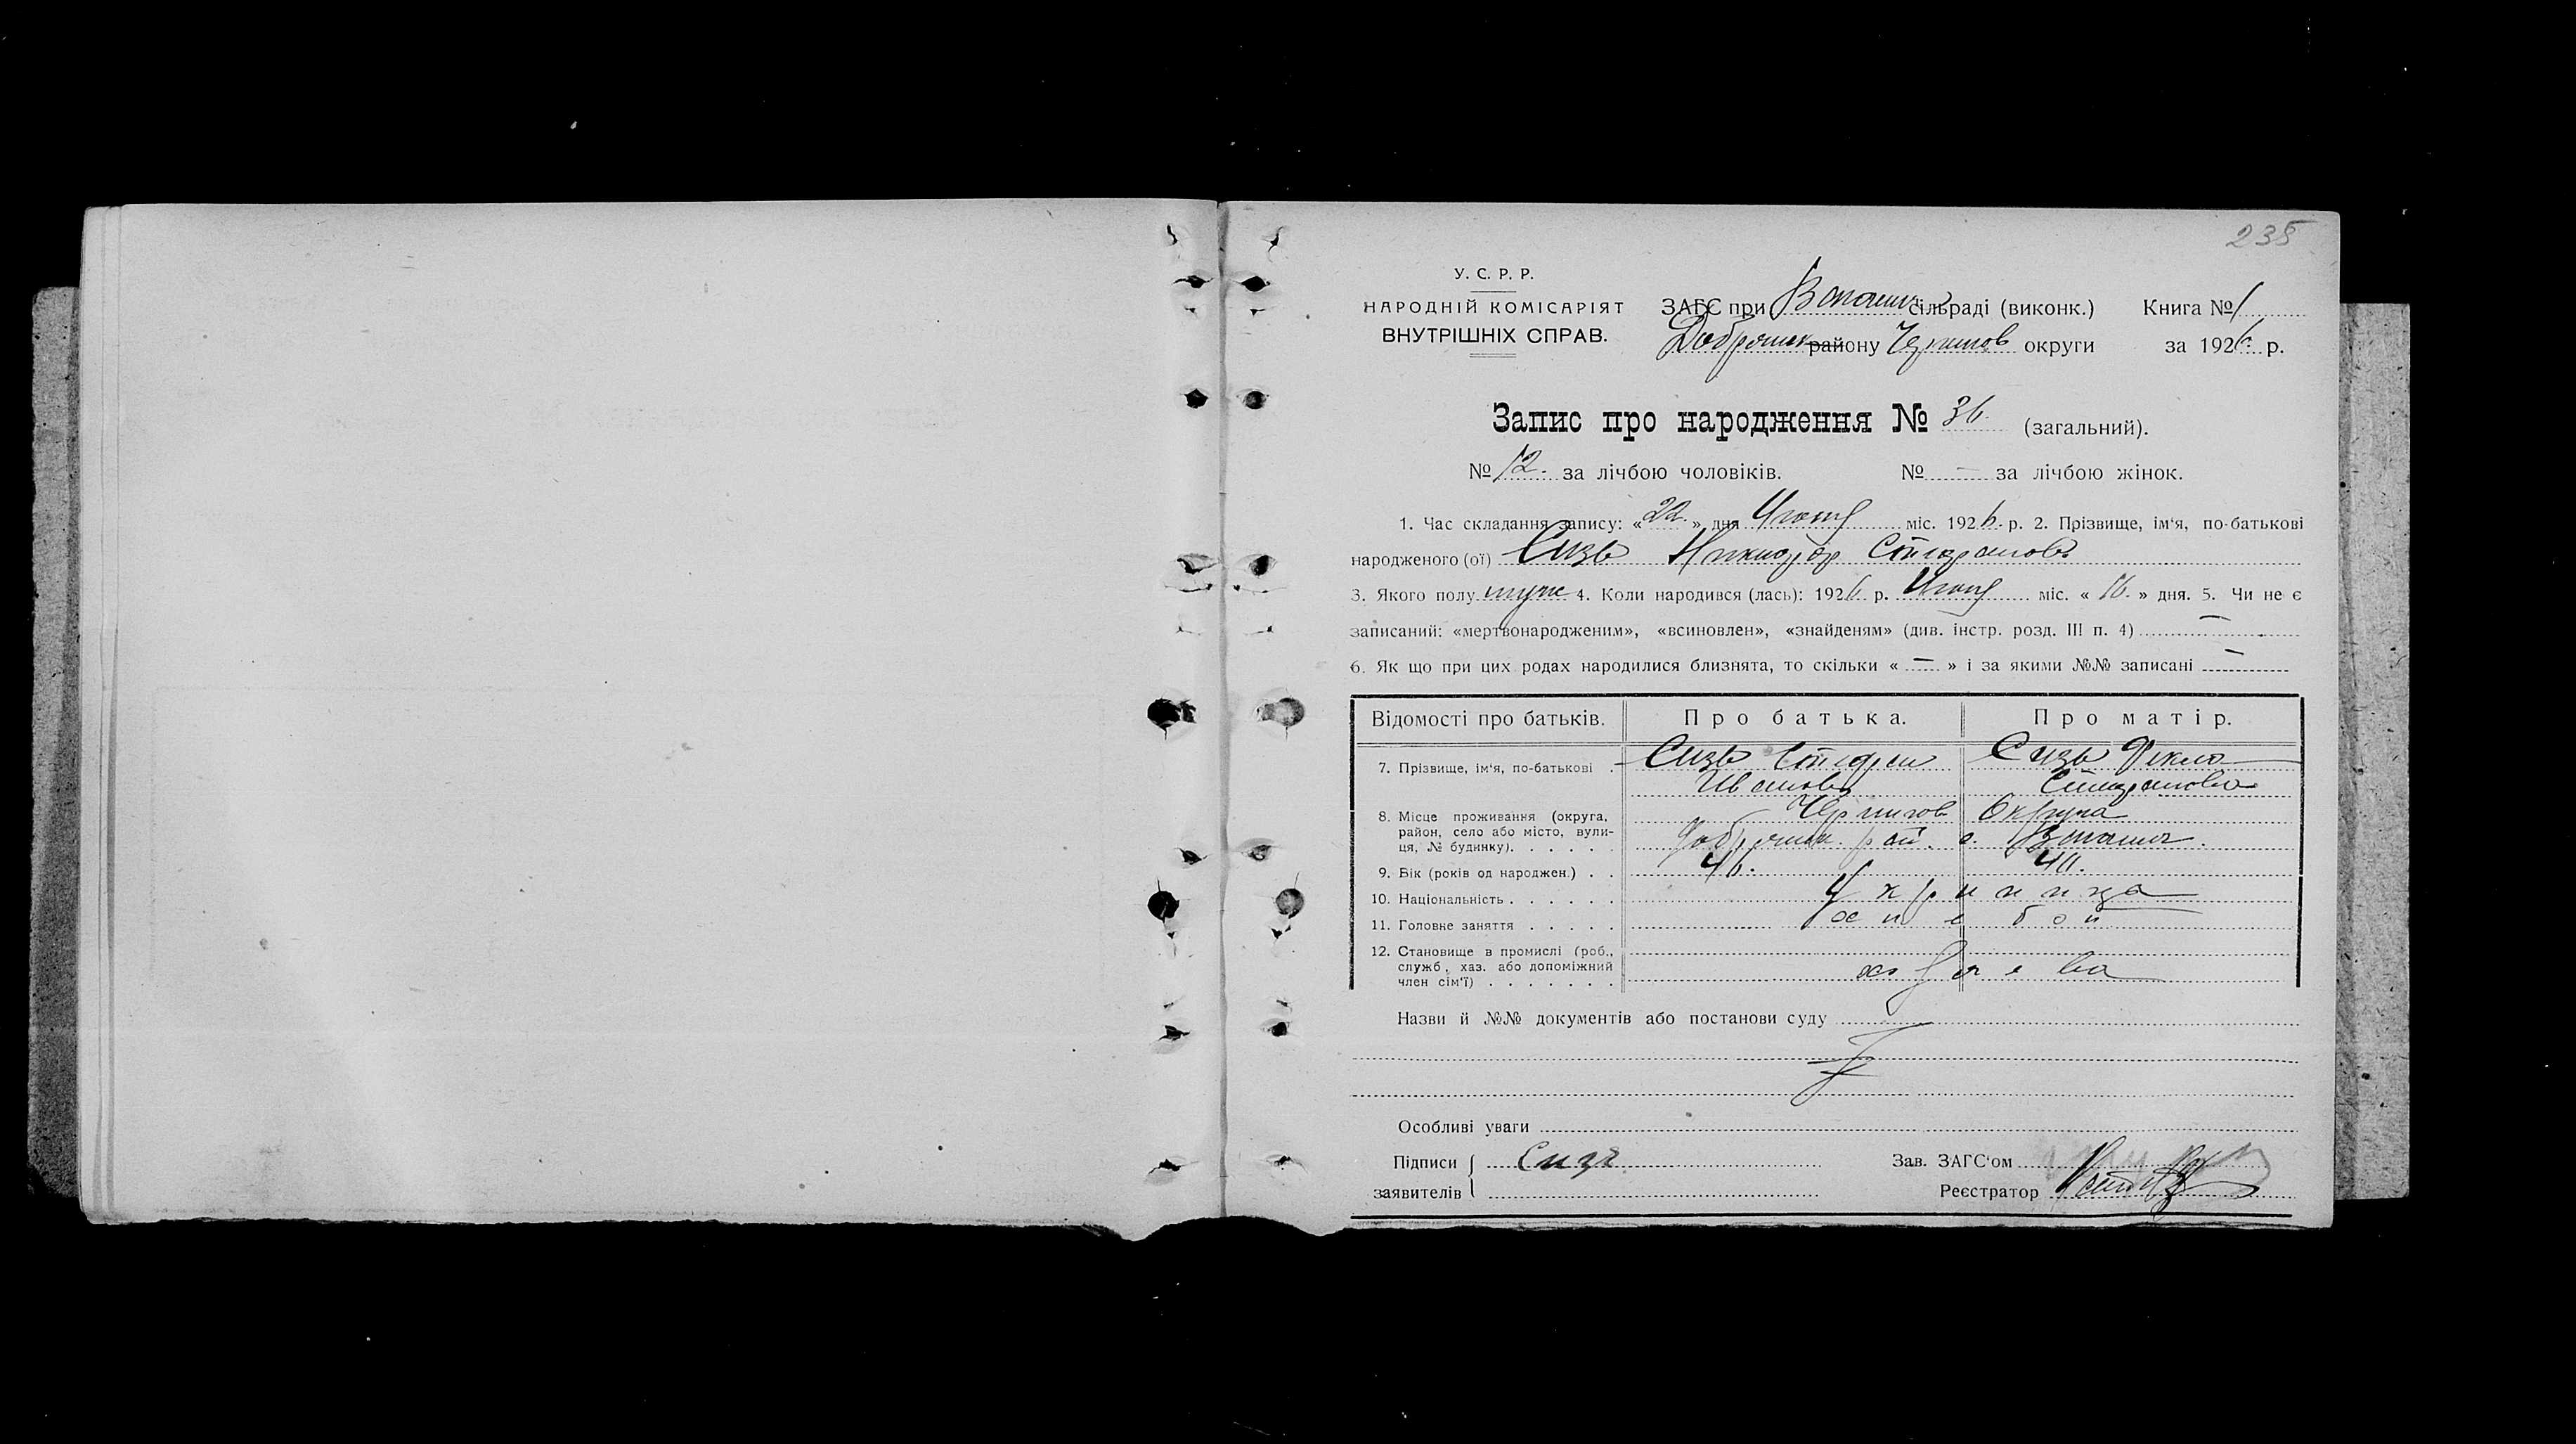 235
У. С. Р. Р.
НАРОДНІЙ КОМІСАРІЯТ
ВНУТРІШНІХ СПРАВ.
ЗАГС при сільраді (виконк.) Книга № 1
Добрянск району Чернигов округи за 1926 р.
Запис про народження № 36 (загальний).
№ 12. за лічбою чоловіків. № — за лічбою жінок.
1. Час складання запису: «22» дня міс. 1926 р. 2. Прізвище, ім'я, по-батькові
народженого (ої) Сизь Никифор Стефанов
3. Якого полу муж 4. Коли народився (лась): 1926 р. міс. «16» дня. 5. Чи не є
записаний: «мертвонародженим», «всиновлен», «знайденям» (див. інстр. розд. III п. 4) —
6. Як що при цих родах народилися близнята, то скільки « — » і за якими №№ записані —
Відомості про батьків. Про батька. Про матір.
7. Прізвище, ім'я, по-батькові . Сизь Стефан Сизь Фекла
Иванов Стефановна
8. Місце проживання (округа, район, село або місто, вулиця, № будинку). . . . . . Чернигов Округа
Добрянск. рай. с.
9. Вік (років од народжен.) . . 46. 40.
10. Національність . . . . . . Украинца
11. Головне заняття . . . . . хлебоп
12. Становище в промислі (роб., служб, хаз. або допоміжний член сім'ї) . . . . . . .
Назви й №№ документів або постанови суду
Особливі уваги
Підписи
заявителів
Сизь
Зав. ЗАГС'ом
Реєстратор